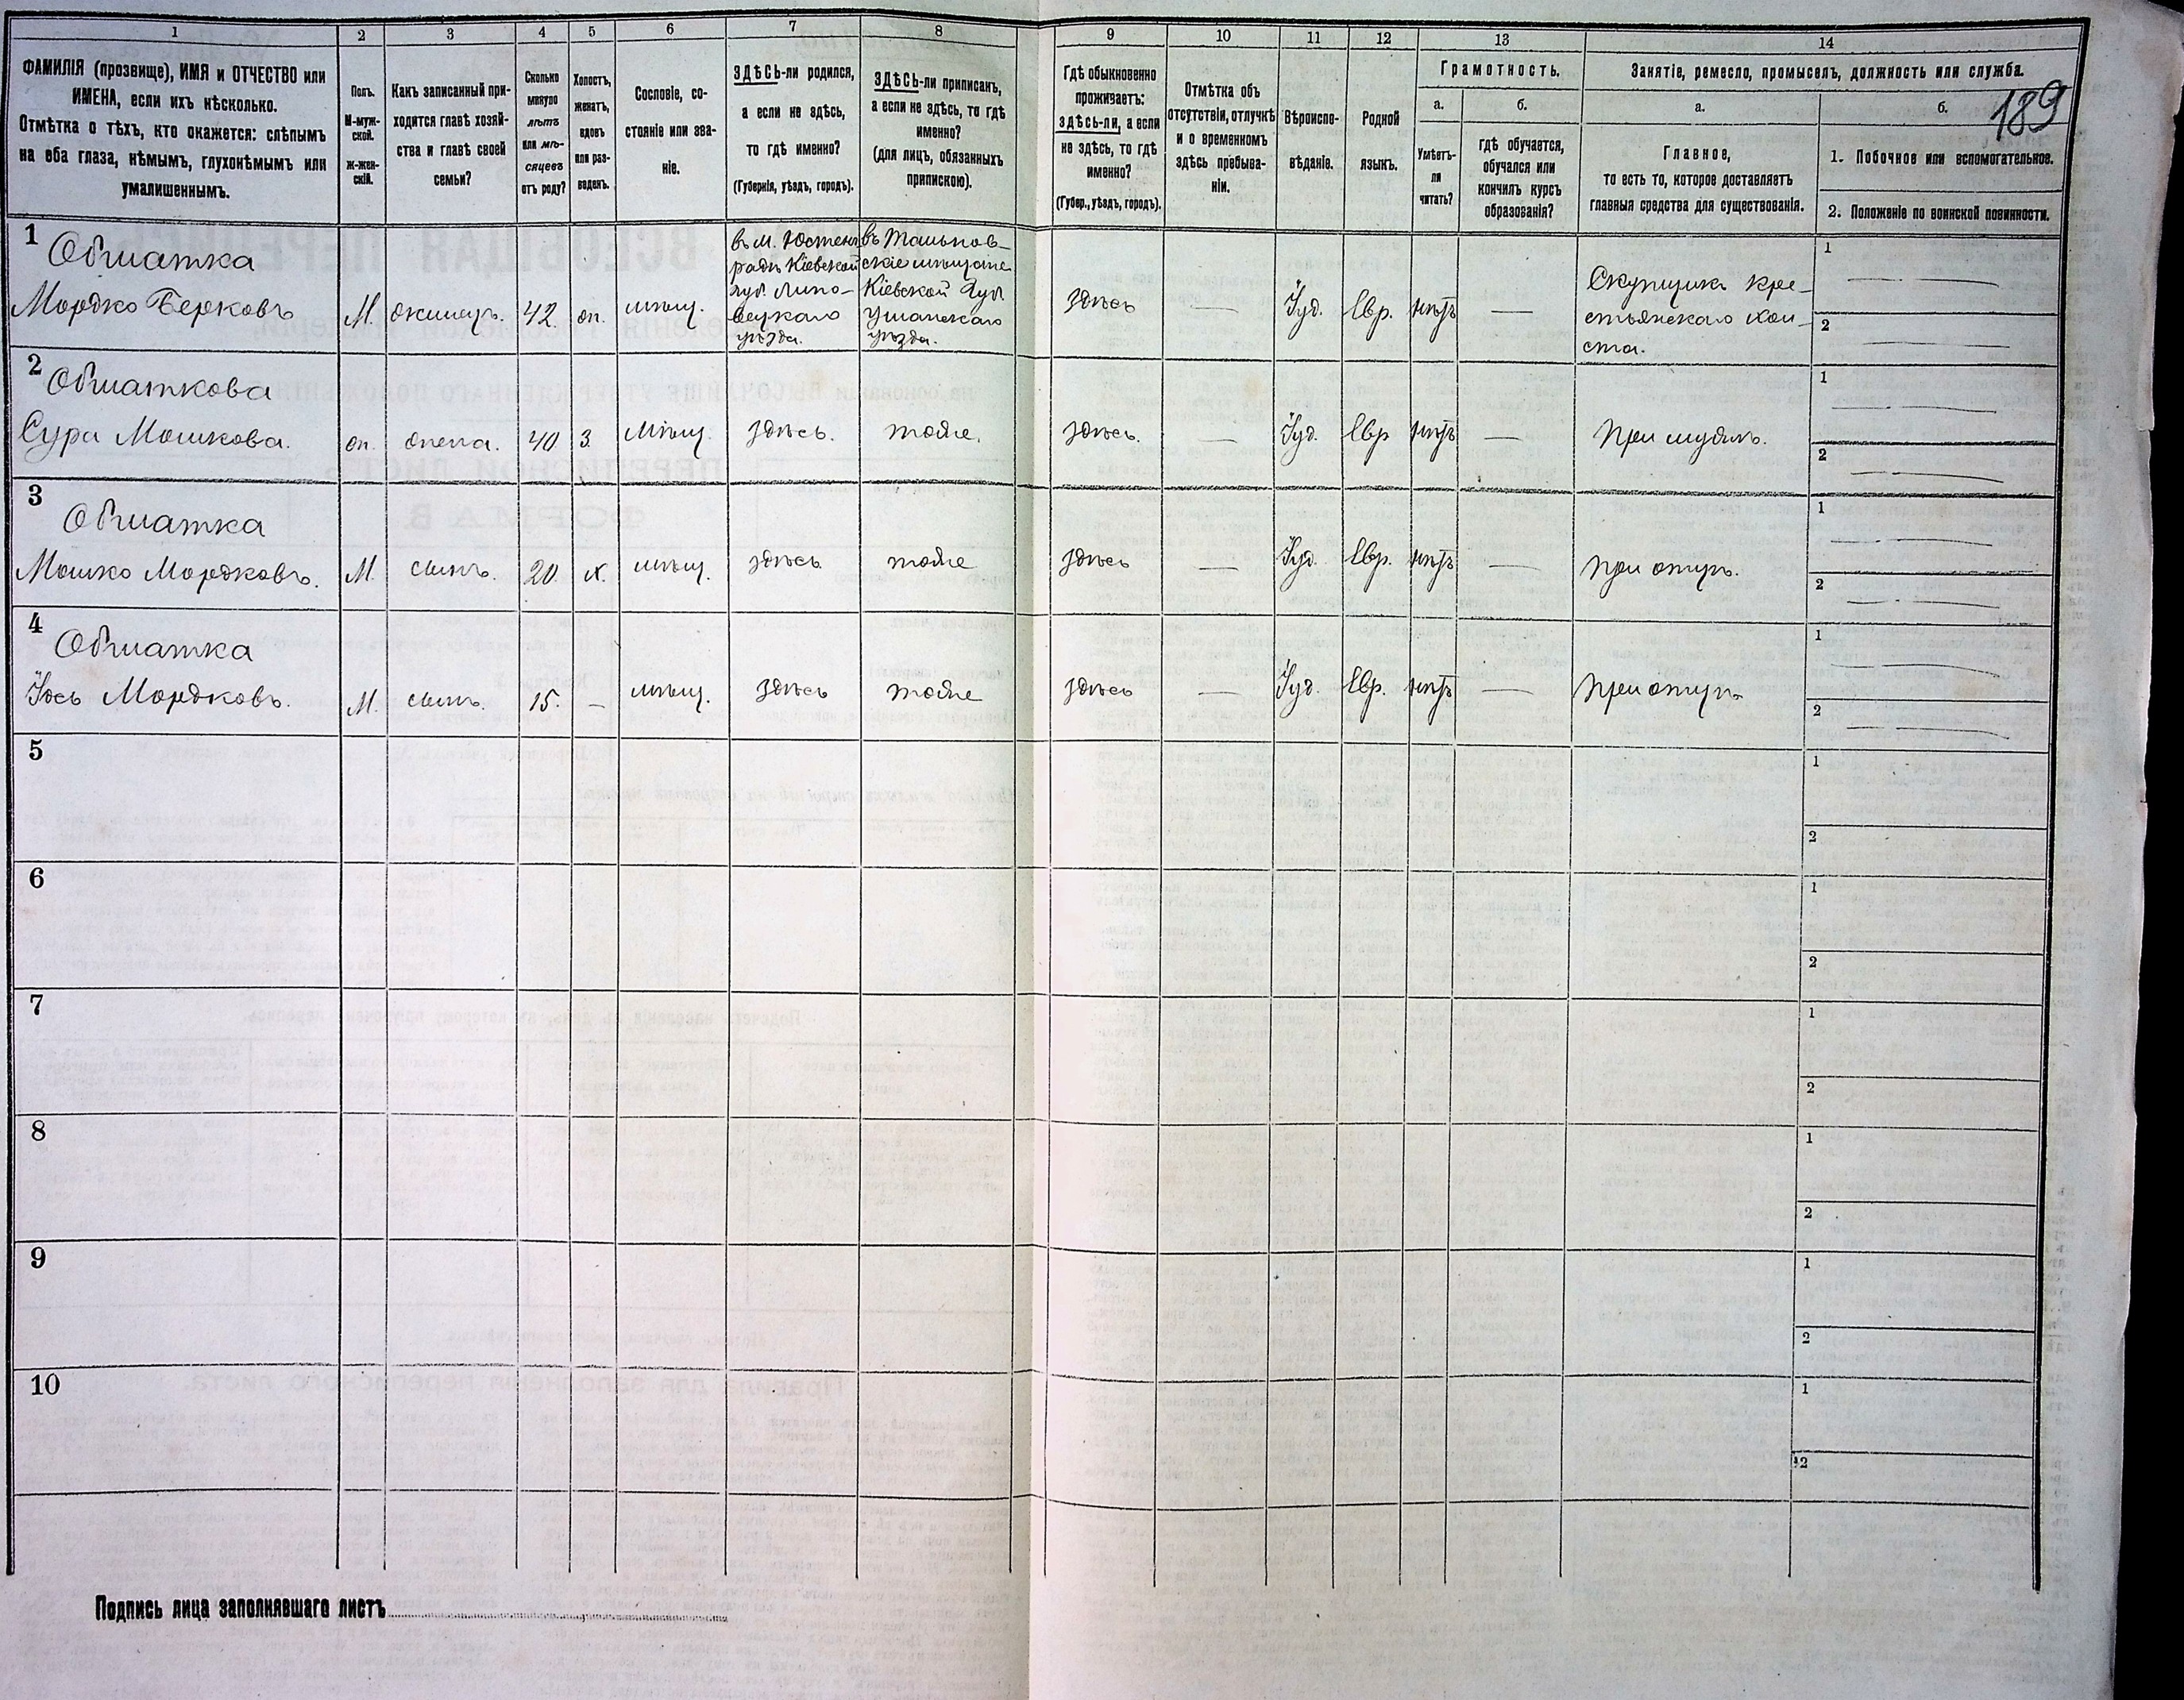 1 2 3 4 5 6 7 8 9 10 11 12 13 14
ФАМИЛІЯ (прозвище), ИМЯ и ОТЧЕСТВО или
ИМЕНА, если ихъ нѣсколько.
Отмѣтка о тѣхъ, кто окажется: слѣпымъ
на оба глаза, нѣмымъ, глухонѣмымъ или
умалишеннымъ.
Полъ.
М-муж-
ской.
Ж-жен-
скій.
Какъ записанный при-
ходится главѣ хозяй-
ства и главѣ своей
семьи?
Сколько
минуло
лѣтъ
или мѣ-
сяцевъ
отъ роду?
Холостъ,
женатъ,
вдовъ
или раз-
веденъ.
Сословіе, со-
стояніе или зва-
ніе.
ЗДѢСЬ-ли родился,
а если не здѣсь,
то гдѣ именно?
(Губернія, уѣздъ, городъ).
ЗДѢСЬ-ли приписанъ,
а если не здѣсь, то гдѣ
именно?
(для лицъ, обязанныхъ
припискою).
Гдѣ обыкновенно
проживаетъ:
здѣсь-ли, а если
не здѣсь, то гдѣ
именно?
(Губер., уѣздъ, городъ).
Отмѣтка объ
отсутствіи, отлучкѣ
и о временномъ
здѣсь пребыва-
ніи.
Вѣроиспо-
вѣданіе.
Родной
языкъ.
Грамотность.
а.
Умѣетъ-
ли
читать?
б.
гдѣ обучается,
обучался или
кончилъ курсъ
образованія?
Занятіе, ремесло, промыселъ, должность или служба.
а.
Главное,
то есть то, которое доставляетъ
главныя средства для существованія.
б.
189
1. Побочное или вспомогательное.
2. Положеніе по воинской повинности.
1
Мордко Берковъ
М.
42.
мѣщ.
Кіевской
уѣзда.
Кіевской Губ.
Уманскаго
уѣзда.
здѣсь
—
Іуд.
Евр.
нѣтъ
—
Скупщикъ кре-
стьянскаго хол-
ста.
1 —
2 —
2
Сура Мошкова.
жена.
40
З
мѣщ.
здѣсь.
тоже.
здѣсь.
—
Іуд.
Евр
нѣтъ
—
При мужѣ.
1 —
2 —
3
Мошко Мордковъ.
М.
сынъ.
20
х.
мѣщ.
здѣсь
тоже
здѣсь
—
Іуд.
Евр.
нѣтъ
—
при отцѣ.
1 —
2 —
4
Мордковъ.
М.
сынъ.
15.
—
мѣщ.
здѣсь
тоже
здѣсь
—
Іуд.
Евр.
нѣтъ
—
при отцѣ
1 —
2 —
5
1
2
6
1
2
7
1
2
8
1
2
9
1
2
10
1
2
Подпись лица заполнявшаго листъ